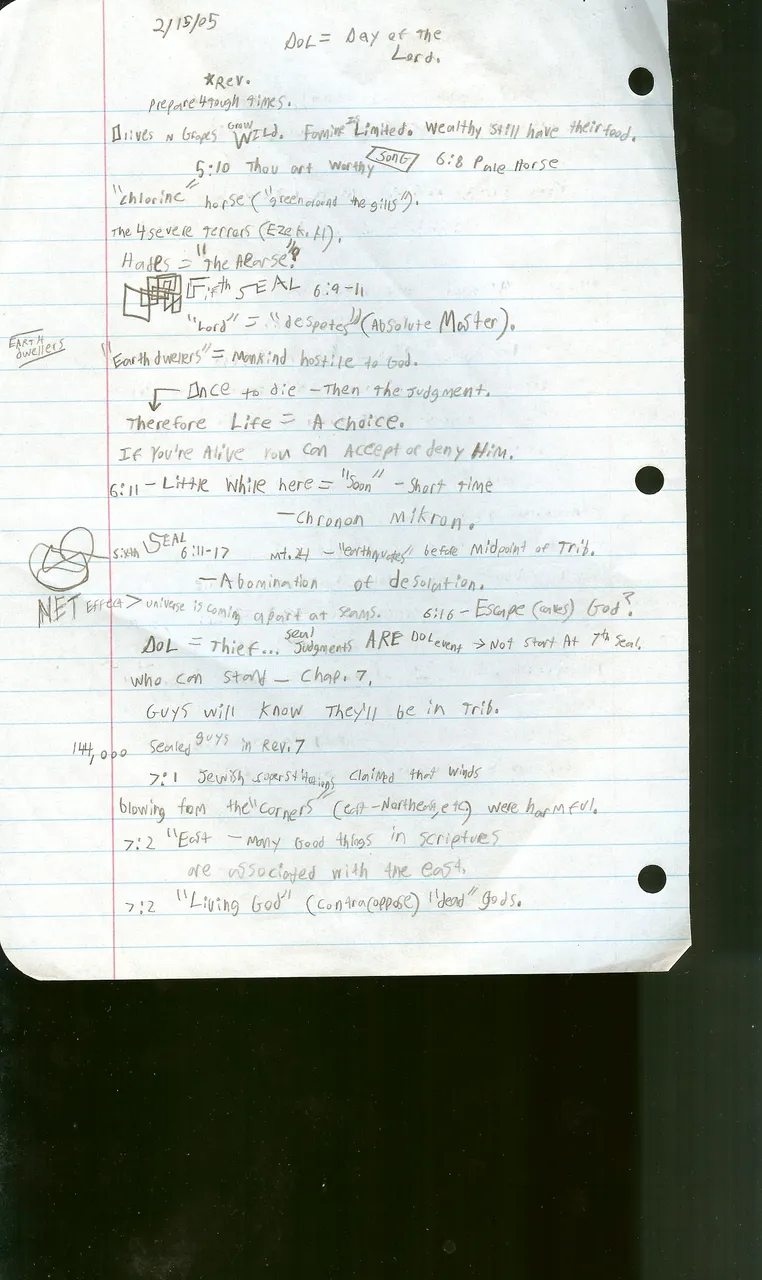 2/15/05
DoL = Day of the
Lord.
*Rev.
Prepare 4 tough times.
Olives n Grapes Grow WILD. Famine is Limited. Wealthy still have their food.
5:10 Thou art worthy SONG 6:8 Pale Horse
"chlorine" horse ("green around the gills").
The 4 severe terrors (Ezek. 14).
Hades = "The Hearse"?
Fifth SEAL 6:9-11
"Lord" = "despotes" (Absolute Master).
EARTH
dwellers
"Earth dwellers" = Mankind hostile to God.
Once to die - Then the Judgment.
Therefore Life = A choice.
If You're Alive You Can Accept or deny Him.
6:11 - Little While here = "Soon" - Short time
- Chronon Mikron.
Sixth SEAL 6:11-17 Mt. 24 - "earthquakes" before Midpoint of Trib.
- Abomination of desolation.
NET Effect > Universe is coming apart at seams. 6:16 - Escape (caves) God?
DoL = Thief... seal Judgments ARE DOL event → Not Start At 7th Seal.
Who can stand - Chap. 7.
Guys will know They'll be in Trib.
144,000 Sealed guys in Rev. 7
7:1 Jewish superstitions claimed that winds
blowing from the "corners" (east-Northeast, etc) were harmful.
7:2 "East - Many Good things in scriptures
are associated with the east.
7:2 "Living God" (contra(oppose) "dead" gods.